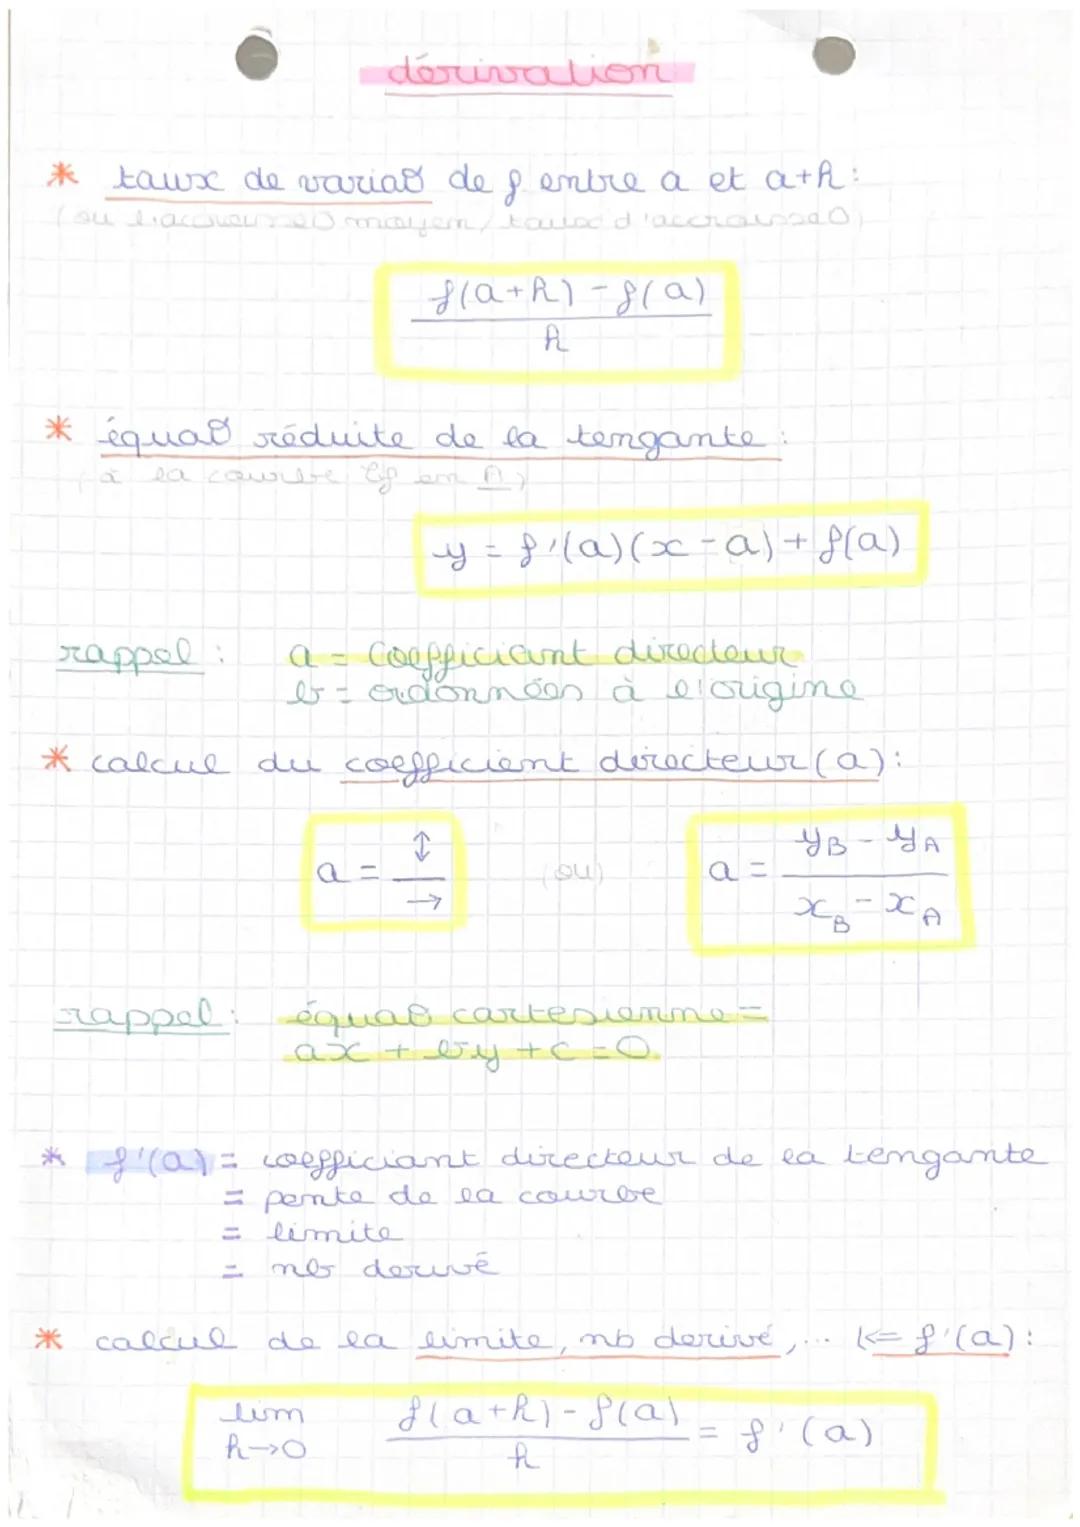 dérivation
* taux de variat° de f entre a et a+h :
(ou l'accroisse° moyen / taux d'accroisse°)
f(a+h) - f(a)
h
* équat° réduite de la tengante :
(à la courbe Cf en A)
y = f'(a)(x-a) + f(a)
rappel : a = Coefficiant directeur
b = ordonnées à l'origine
* calcul du coefficient directeur (a) :
a = ↕ / → (ou) a = yB - yA / xB - xA
rappel : équat° cartesienne =
ax + by + c = 0.
* f'(a) = coefficiant directeur de la tengante
= pente de la courbe
= limite
= nb derivé
* calcul de la limite, nb derivé, ... <= f'(a) :
lim f(a+h) - f(a) = f'(a)
h→0 h